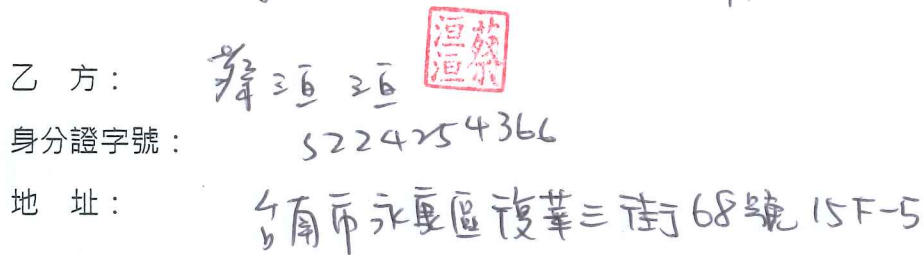 乙 方: 蔡洹洹 蔡洹洹
身分證字號: S224254366
地 址: 台南市永康區復華三街68號15F-5